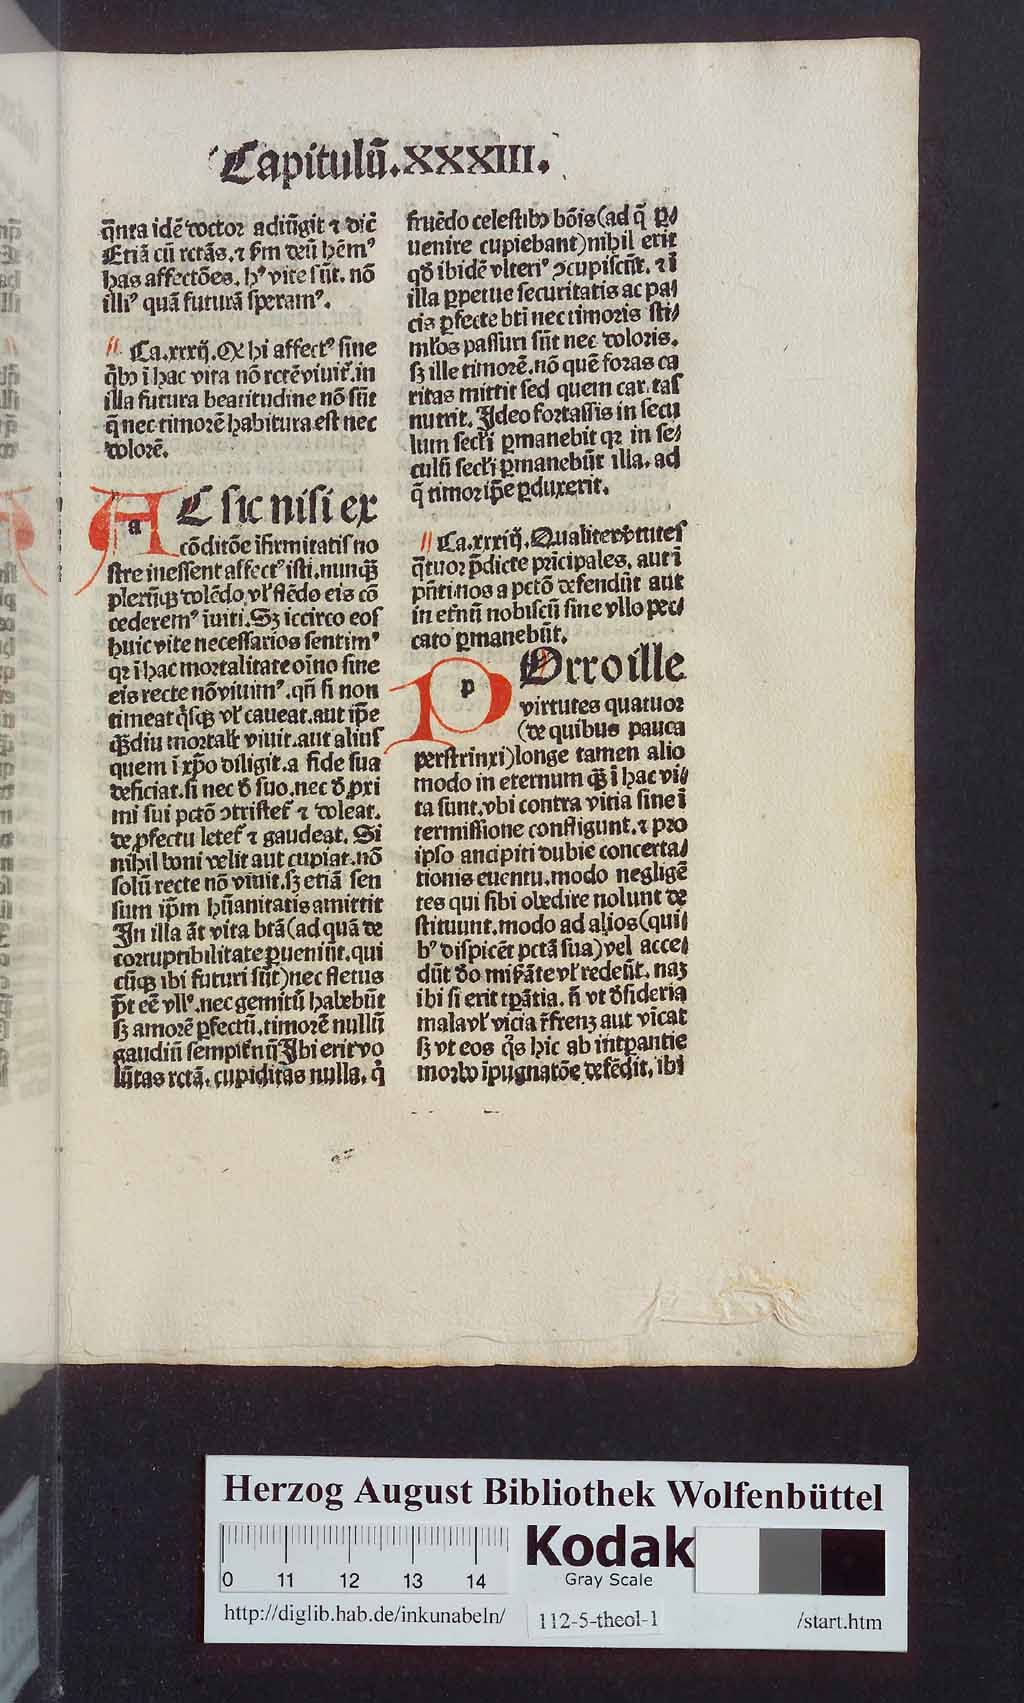 Capitulū.XXXIII.
q̄nta idē doctor adiūgit ⁊ dic̄
Etiā cū rctās.⁊ ẜm deū hēm⁹
has affectōes. h⁹ vite sūt. nō
illi⁹ quā futurā speram⁹.
Ca.xxxij. Ꝙ hi affect⁹ sine
q̄bꝫ ī hac vita nō rctē viuit᷑.in
illa futura beatitudine nō sūt
q̄ nec timorē habitura est nec
dolorē.
AC sic nisi ex
a
cōditōe īfirmitatis no
stre inessent affect⁹ isti.nunqᷓꝫ
plerūqꝫ dolēdo vl᷑ flēdo eis cō
cederem⁹ īuiti.Sꝫ iccirco eos
huic vite necessarios sentim⁹
qꝛ ī hac mortalitate oīno sine
eis recte nō viuim⁹.qn̄ si non
timeat q̇sqꝫ vl᷑ caueat.aut ip̄e
qᷓꝫdiu mortalit᷑ viuit.aut alius
quem ī xp̄o diligit.a fide sua
deficiat.si nec ð suo.nec ð ꝓxi
mi sui pctō ꝯtristet᷑ ⁊ doleat.
de ꝓfectu letet᷑ ⁊ gaudeat. Si
nihil boni velit aut cupiat.nō
solū recte nō viuit.sꝫ etiā sen
sum ip̄m hūanitatis amittit
In illa āt vita btā(ad quā de
corruptibilitate ꝑueniūt.qui
cūqꝫ ibi futuri sūt)nec fletus
pōt eē vll⁹.nec gemitū habebūt
sꝫ amorē ꝑfectū.timorē nullū
gaudiū sempit᷑nū Ibi erit vo
lūtas rctā. cupiditas nulla. q̇
fruēdo celestibꝫ bōis(ad q̄ ꝑ/
uenire cupiebant)nihil erit
qð ibidē vlteri⁹ ꝯcupiscāt. ⁊ ī
illa ꝑpetue securitatis ac pa/
cis ꝑfecte btī nec timoris sti/
ml᷑os passuri sūt nec doloris.
sꝫ ille timorē.nō quē foras ca
ritas mittit sed quem caritas
nutrit. Ideo fortassis in secu
lum secl᷑i ꝑmanebit qꝛ in se/
culū secl᷑i ꝑmanebūt illa. ad
q̄ timor ip̄e ꝑduxerit.
Ca.xxxiij. Qualiter v̓tutes
q̄tuor p̄dicte prīcipales. aut ī
pn̄ti nos a pctō defendūt aut
in et᷑nū nobiscū sine vllo pec/
cato ꝑmanebūt.
POrro ille
p
virtutes quatuor
(de quibus pauca
perstrinxi)longe tamen alio
modo in eternum qᷓꝫ ī hac vi/
ta sunt.vbi contra vitia sine ī
termissione confligunt.⁊ pro
ipso ancipiti dubie concerta/
tionis euentu.modo negligē
tes qui sibi obedire nolunt de
stituunt.modo ad alios(qui/
b⁹ dispicēt pctā sua)vel acce/
dūt ðo mis̓ante vl᷑ redeūt. naꝫ
ibi si erit tꝑātia. n̄ vt ðsideria
mala vl᷑ vicia r̄frenꝫ aut vicat
sꝫ vt eos q̇s hic ab intꝑantie
morbo īpugnatōe defēdit. ibi
Herzog August Bibliothek Wolfenbüttel
0 11 12 13 14
Kodak
Gray Scale
http://diglib.hab.de/inkunabeln/
112-5-theol-1
/start.htm